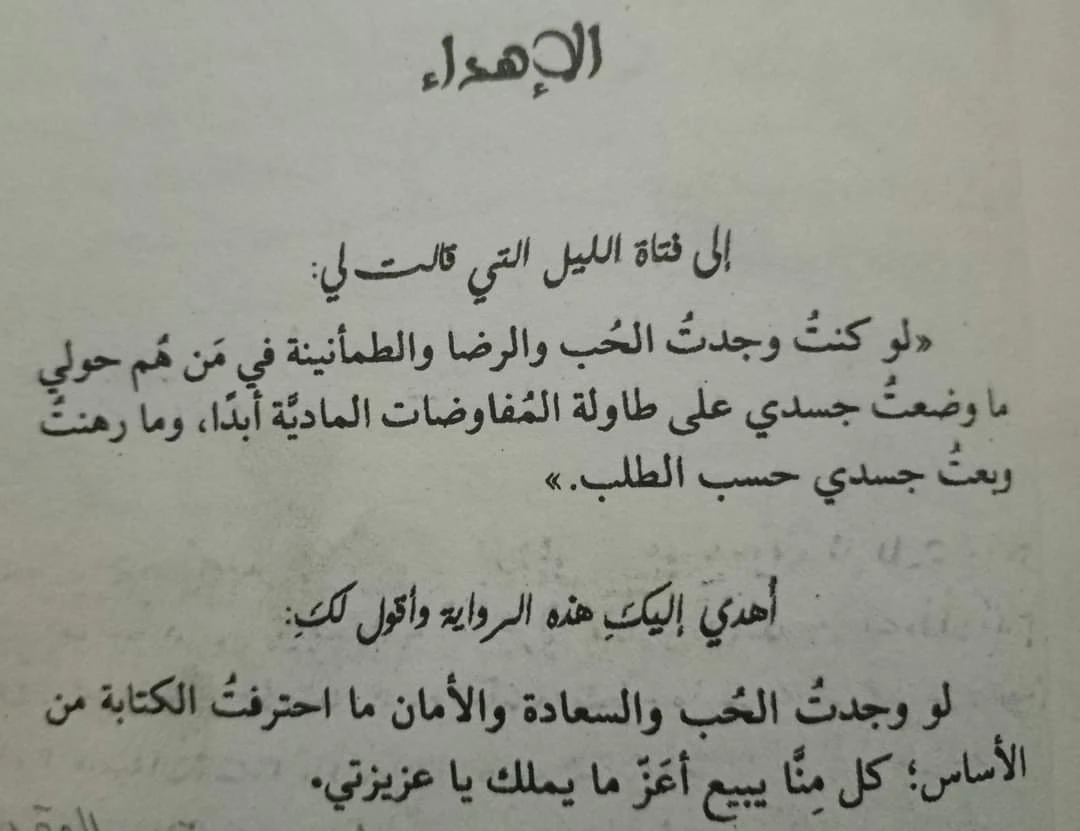 الإهداء
إلى فتاة الليل التي قالت لي:
«لو كنتُ وجدتُ الحُب والرضا والطمأنينة في مَن هُم حولي
ما وضعتُ جسدي على طاولة المُفاوضات الماديَّة أبدًا، وما رهنتُ
وبعتُ جسدي حسب الطلب.»
أهدي إليكِ هذه الرواية وأقول لكِ:
لو وجدتُ الحُب والسعادة والأمان ما احترفتُ الكتابة من
الأساس؛ كل مِنَّا يبيع أعَزّ ما يملك يا عزيزتي.